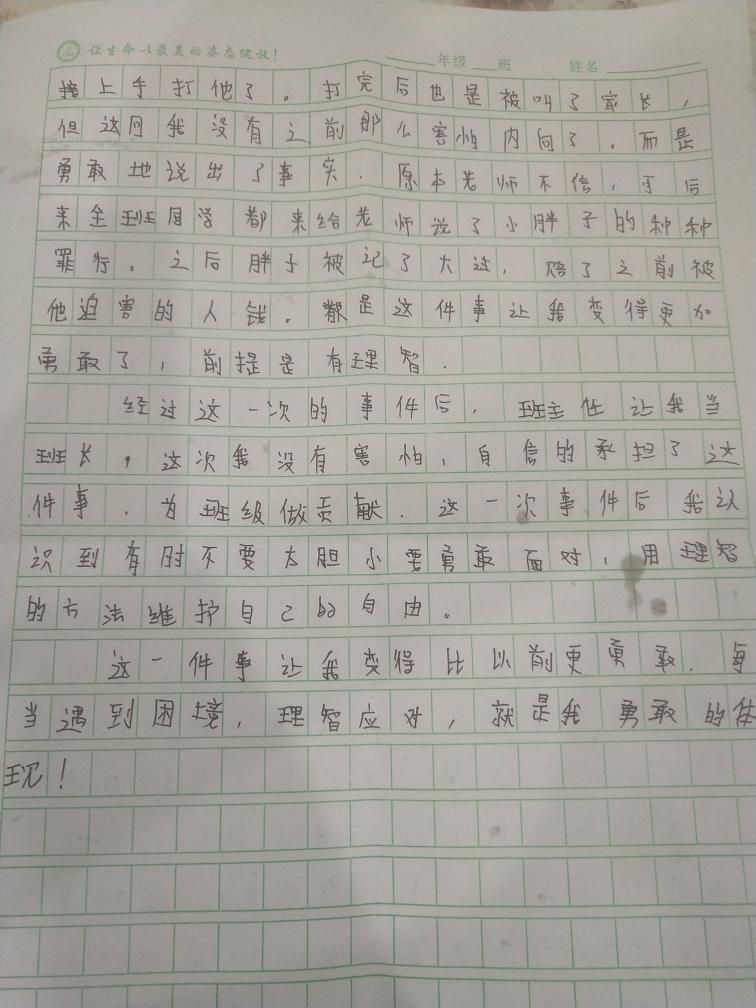 让生命以最美的姿态绽放！
年级 班 姓名
接上手打他了。打完后也是被叫了家长，
但这回我没有之前那么害怕内向了．而是
勇敢地说出了事实．原本老师不信，可后
来全班同学都来给老师说了小胖子的种种
罪行。之后胖子被记了大过，赔了之前被
他迫害的人钱．是这件事让我变得更加
勇敢了，前提是有理智．
经过这一次的事件后，班主任让我当
班长，这次我没有害怕，自信的承担了这
件事．为班级做贡献．这一次事件后我认
识到有时不要太胆小要勇敢面对，用理智
的方法维护自己的自由。
这一件事让我变得比以前更勇敢．每
当遇到困境，理智应对，就是我勇敢的体
现！